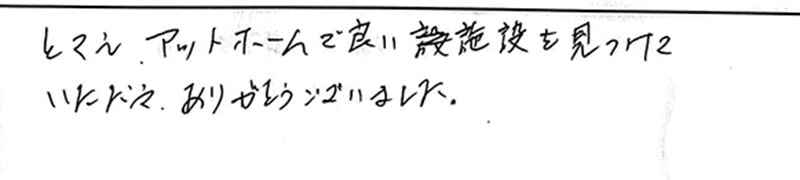 とても、アットホームで良い施設を見つけて
いただき、ありがとうございました。